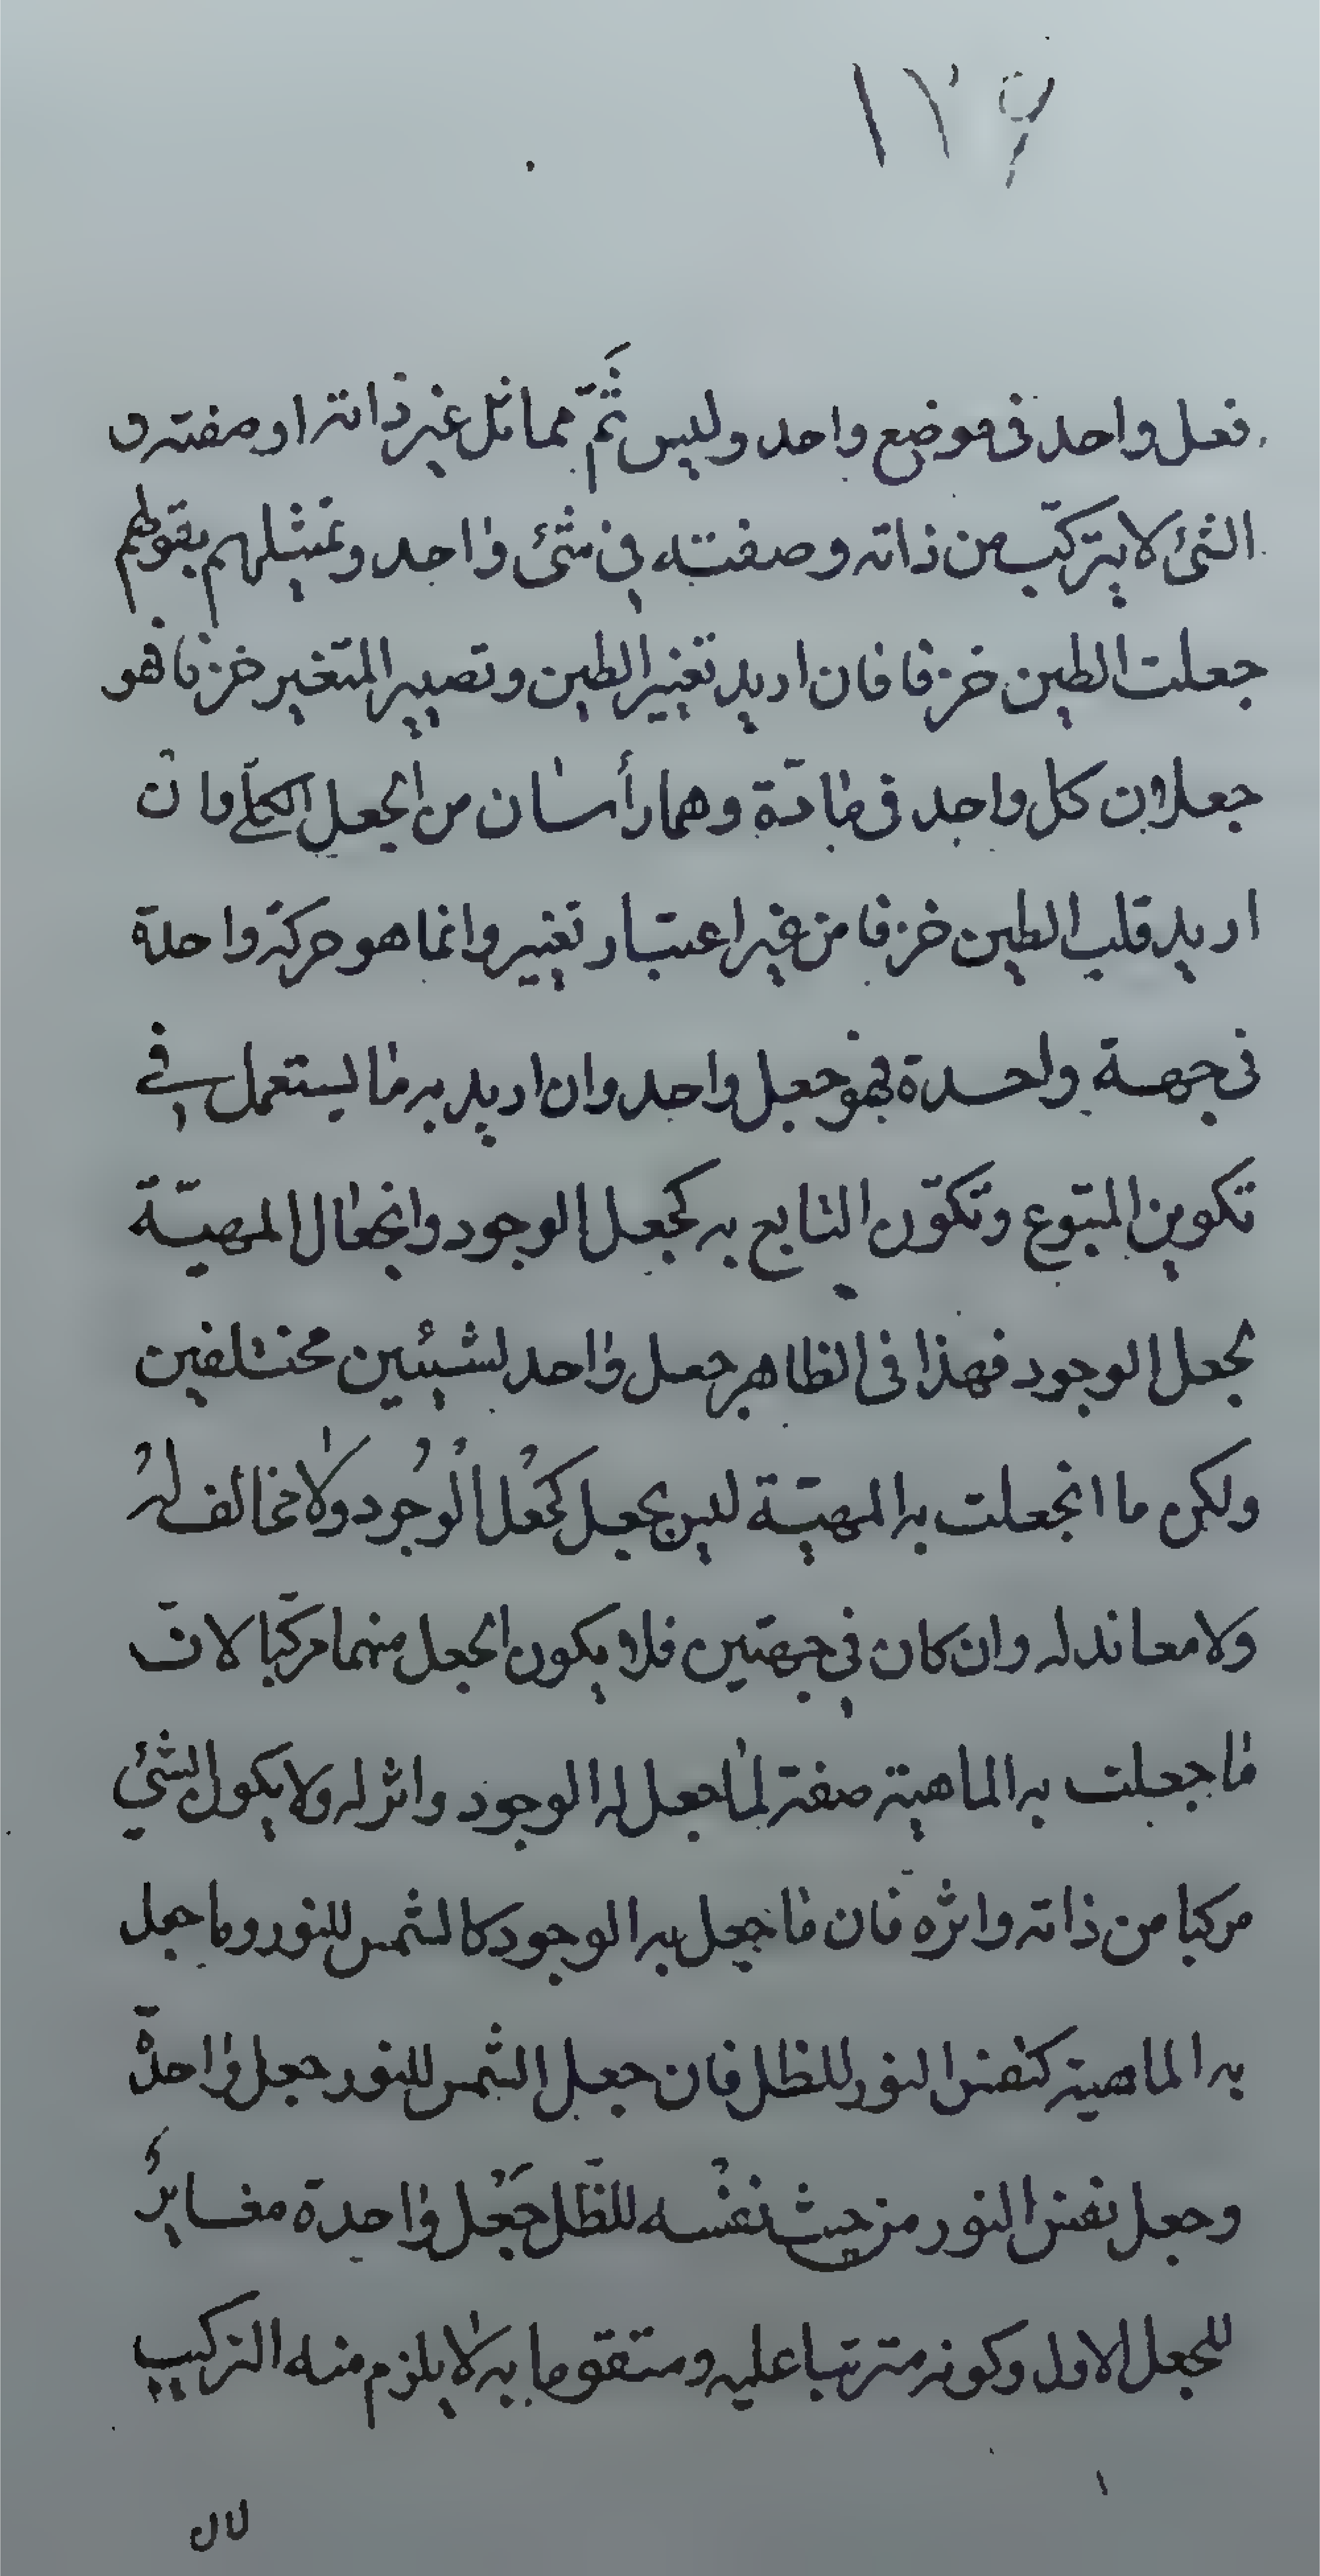 ١٢٩
فعل واحد فى موضع واحد وليس ثَمّ مماثل غير ذاته او صفته و
الشئ لا يتركّب من ذاته وصفته في شئ واحد وتمثيلهم بقولهم
جعلت الطين خزفا فان اريد تغيير الطين وتصيير المتغير خزفا فهو
جعلان كل واحد فى مادّة وهما رأسان من الجعل الكلّي وان
اريد قلب الطين خزفا من غير اعتبار تغيير وانما هو حركة واحدة
فى جهة واحدة فهو جعل واحد وان اريد به ما يستعمل في
تكوين المتبوع وتكوّن التابع به كجعل الوجود وانجعال المهيّة
بجعل الوجود فهذا فى الظاهر جعل واحد لشيئين مختلفين
ولكن ما انجعلت به المهيّة ليس بجعل كجَعْل الْوُجُود ولا مخالف لهُ
ولا معاند له وان كان في جهتين فلا يكون الجعل منهما مركّبا لانّ
ما جعلت به الماهية صفة لما جعل له الوجود واثر له ولا يكون الشئ
مركبا من ذاته واثره فان ما جعل به الوجود كالشمس للنور وما جعل
به الماهية كنفس النور للظل فان جعل الشمس للنور جعل واحدة
وجعل نفس النور من حيث نفْسه للظّل جَعْل واحدة مغايرُ
للجعل الاول وكونه مترتبا عليه ومتقوما به لا يلزم منه التركيب
لان